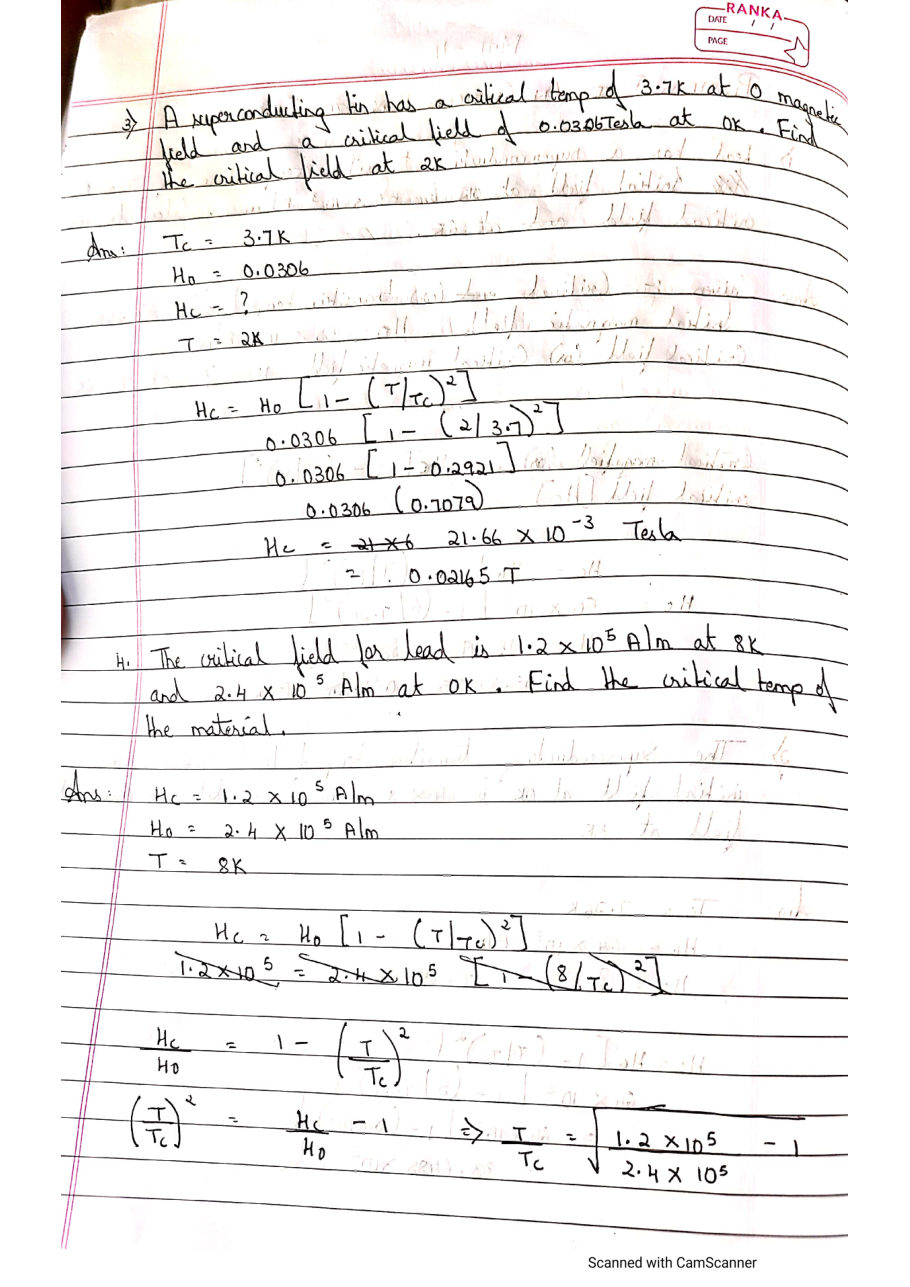 RANKA
DATE / /
PAGE
3) A superconducting tin has a critical temp of 3.7K at 0 magnetic
field and a critical field of 0.0306Tesla at 0K. Find
the critical field at 2K
Ans: Tc = 3.7K
H0 = 0.0306
Hc = ?
T = 2K
Hc = H0 [1 - (T/Tc)²]
0.0306 [1 - (2/3.7)²]
0.0306 [1 - 0.2921]
0.0306 (0.7079)
Hc = 21×6 21.66 × 10⁻³ Tesla
= 0.02165 T
4. The critical field for lead is 1.2 × 10⁵ A/m at 8K
and 2.4 × 10⁵ A/m at 0K. Find the critical temp of
the material.
Ans: Hc = 1.2 × 10⁵ A/m
H0 = 2.4 × 10⁵ A/m
T = 8K
Hc = H0 [1 - (T/Tc)²]
1.2 × 10⁵ = 2.4 × 10⁵ [1 - (8/Tc)²]
Hc/H0 = 1 - (T/Tc)²
(T/Tc)² = Hc/H0 - 1 ⇒ T/Tc = √(1.2 × 10⁵/2.4 × 10⁵ - 1)
Scanned with CamScanner